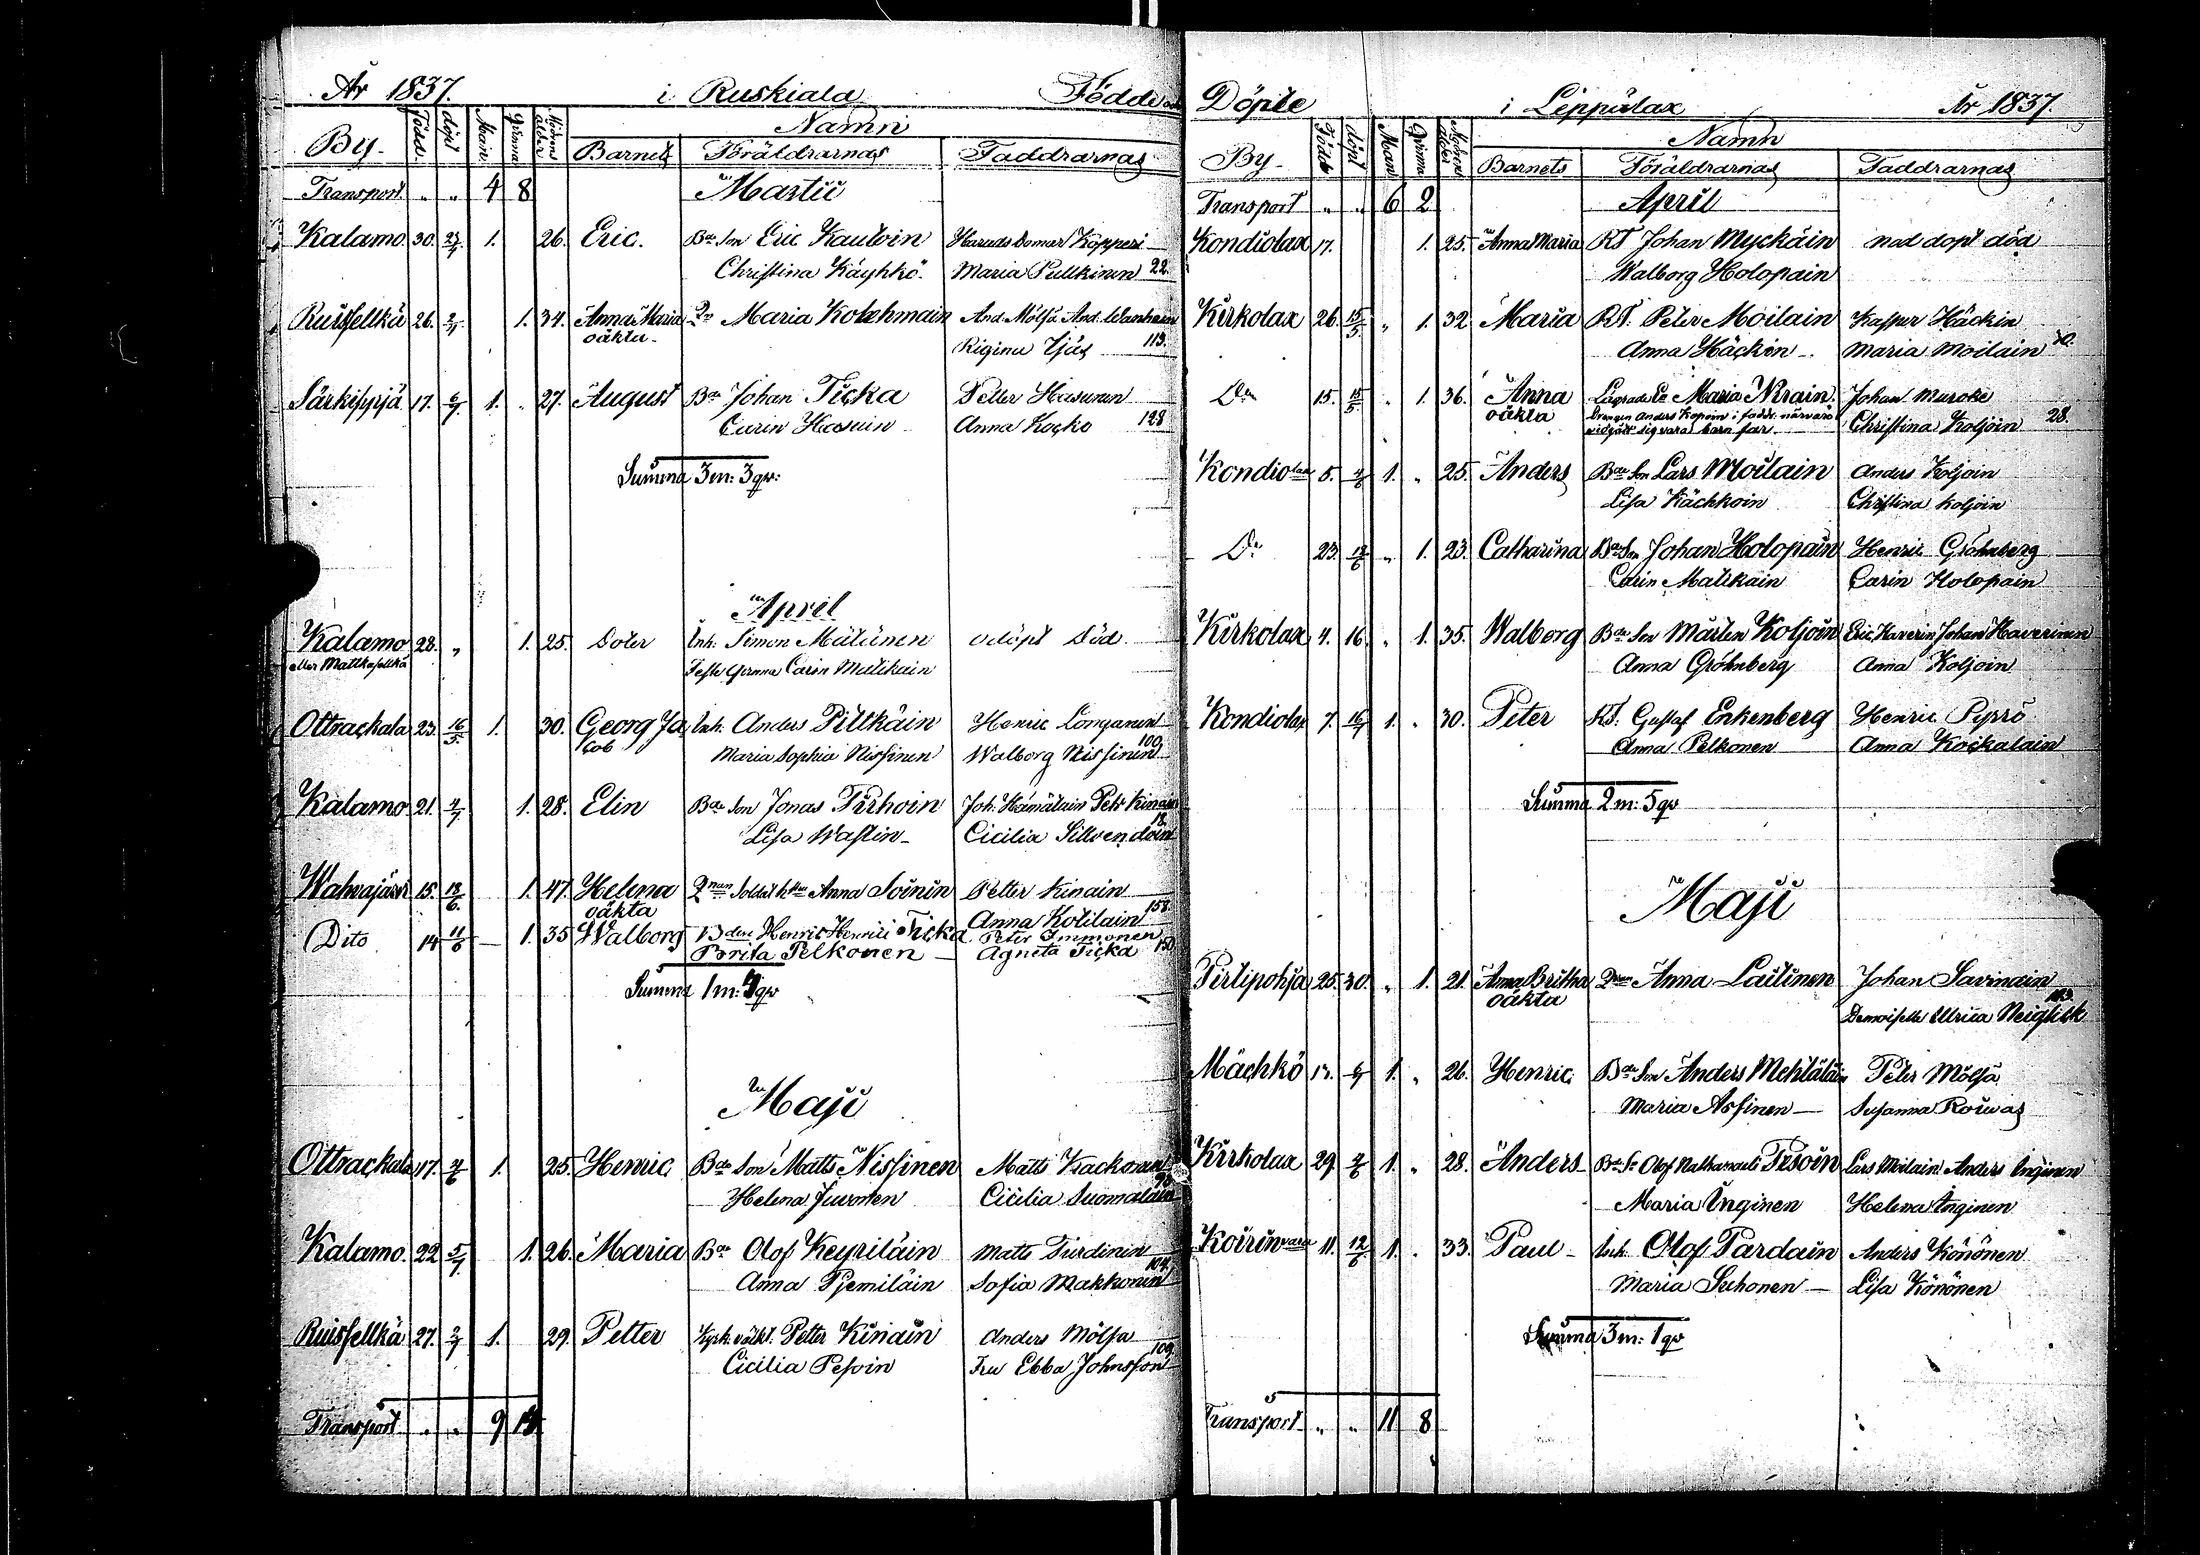 År 1837. i Ruskiala Födde och
By. Född. döpt Man. Qvinna Modrens ålder Namn
Barnets Föräldrarnas Faddrarnas
Transport " " 4 8 Martii
Kalamo 30. 23/4 1. 26. Eric. Bde Son Eric Kauloin Härads Domar Kopperi
Christina Käyhkö Maria Pulkinen 22.
Ruisselkä 26. 2/4 1. 34. Anna Maria Maria Kolehmain And. Mölsä And. Wanhain
oäkta Regina Ijäs 113.
Särkisyrjä 17. 6/4 1. " 27. August Bde Johan Ticka Petter Hasunen
Carin Hasuin Anna Kocko 128
Summa 3 m: 3 qv:
April
Kalamo 28. " 1. 25. Doter Inh. Simon Mälinen odöpt död
eller Mattkaselkä Feste Qvinna Carin Matikain
Ottrackala 23. 16/5. 1. 30. Georg Ja Inh. Anders Pitkäin Henric Longanen
cob Maria Sophia Nissinen Walborg Nissinen 100
Kalamo 21. 4/7 1. 28. Elin Bde Son Jonas Tirhoin Joh. Hämäläin Petr Kinain
Lisa Wastin Cicilia Silvendoin 18.
Wahvajärvi 15. 18/6. 1. 47. Helena Soldat Anna Soinin Petter Kinain
oäkta Anna Kotilain 158.
Dito 14 11/6 1. 35 Walborg Bden Henric Henrici Ticka Peter Immonen
Brita Pelkonen Agneta Ticka 150
Summa 1 m: 5 qv
Maji
Ottrackala 17. 4/6 1. 25. Henric Bde Son Matts Nissinen Matts Kackonen
Helena Juvonen Cicilia Suomalain
Kalamo 22 5/7 1. 26. Maria Bde Olof Keyriläin Matts Turdinin
Anna Pjemiläin Sofia Makkonin 104.
Ruisselkä 27. 2/7 1. 29. Petter Kyrk väkt. Petter Kinain Anders Mölsä
Cicilia Pesoin Fru Ebba Johnsson 109.
Transport " " 9
Döpte i Leppälax År 1837.
By. Född döpt Man Qvinna Modren ålder Namn
Barnets Föräldrarnas Faddrarnas
Transport " " 6 2 April
Kondiolax 17. 1. 25. Anna Maria RT Johan Myckäin nöd döpt död
Walborg Holopain
Kirkolax 26. 15/5. " 1. 32. Maria RT. Peter Moilain Kasper Häckin
Anna Häckin Maria Moilain 30.
Do 15. 15/5. " 1. 36. Anna Maria Nkrain Johan Muroke
oäkta Drengen Anders Kopoin i fadd: närvaro
vidgått sig vara barn far Christina Koljoin 28.
Kondiolax 5. 4/6 1. " 25. Anders Bde Son Lars Moilain Anders Koljoin
Lisa Käckkoin Christina Koljoin
Do 23. 12/6 " 1. 23. Catharina Bde Son Johan Holopain Henric Gröhnberg
Carin Matikain Carin Holopain
Kirkolax 4. 16. " 1. 35. Walborg Bde Son Mårten Koljoin Eric Kaverin Johan Haverinen
Anna Gröhnberg Anna Koljoin
Kondiolax 7. 16/7 1. " 30. Peter RT. Gustaf Enkenberg Henric Pyrrö
Anna Pelkonen Anna Kockalain
Summa 2 m: 5 qv
Maji
Pirtipohja 25. 30. " 1. 21. Anna Britha Anna Laitinen Johan Savinain
oäkta Demoiselle Ulrica Neiglick
Mäckkö 13. 6/7 1. " 26. Henric Bde Son Anders Mehtäläin Peter Mölsä
Maria Assinen Susanna Roivas
Kirkolax 29. 2/6 1. " 28. Anders Bde Sn Olof Nathanaels Tisoin Lars Moilain Anders Inginen
Maria Inginen Helena Inginen
Koirinvara 11. 12/6 1. " 33. Paul Inh. Olof Pardain Anders Könönen
Maria Suhonen Lisa Könönen
Summa 3 m: 1 qv
Transport " " 11 8